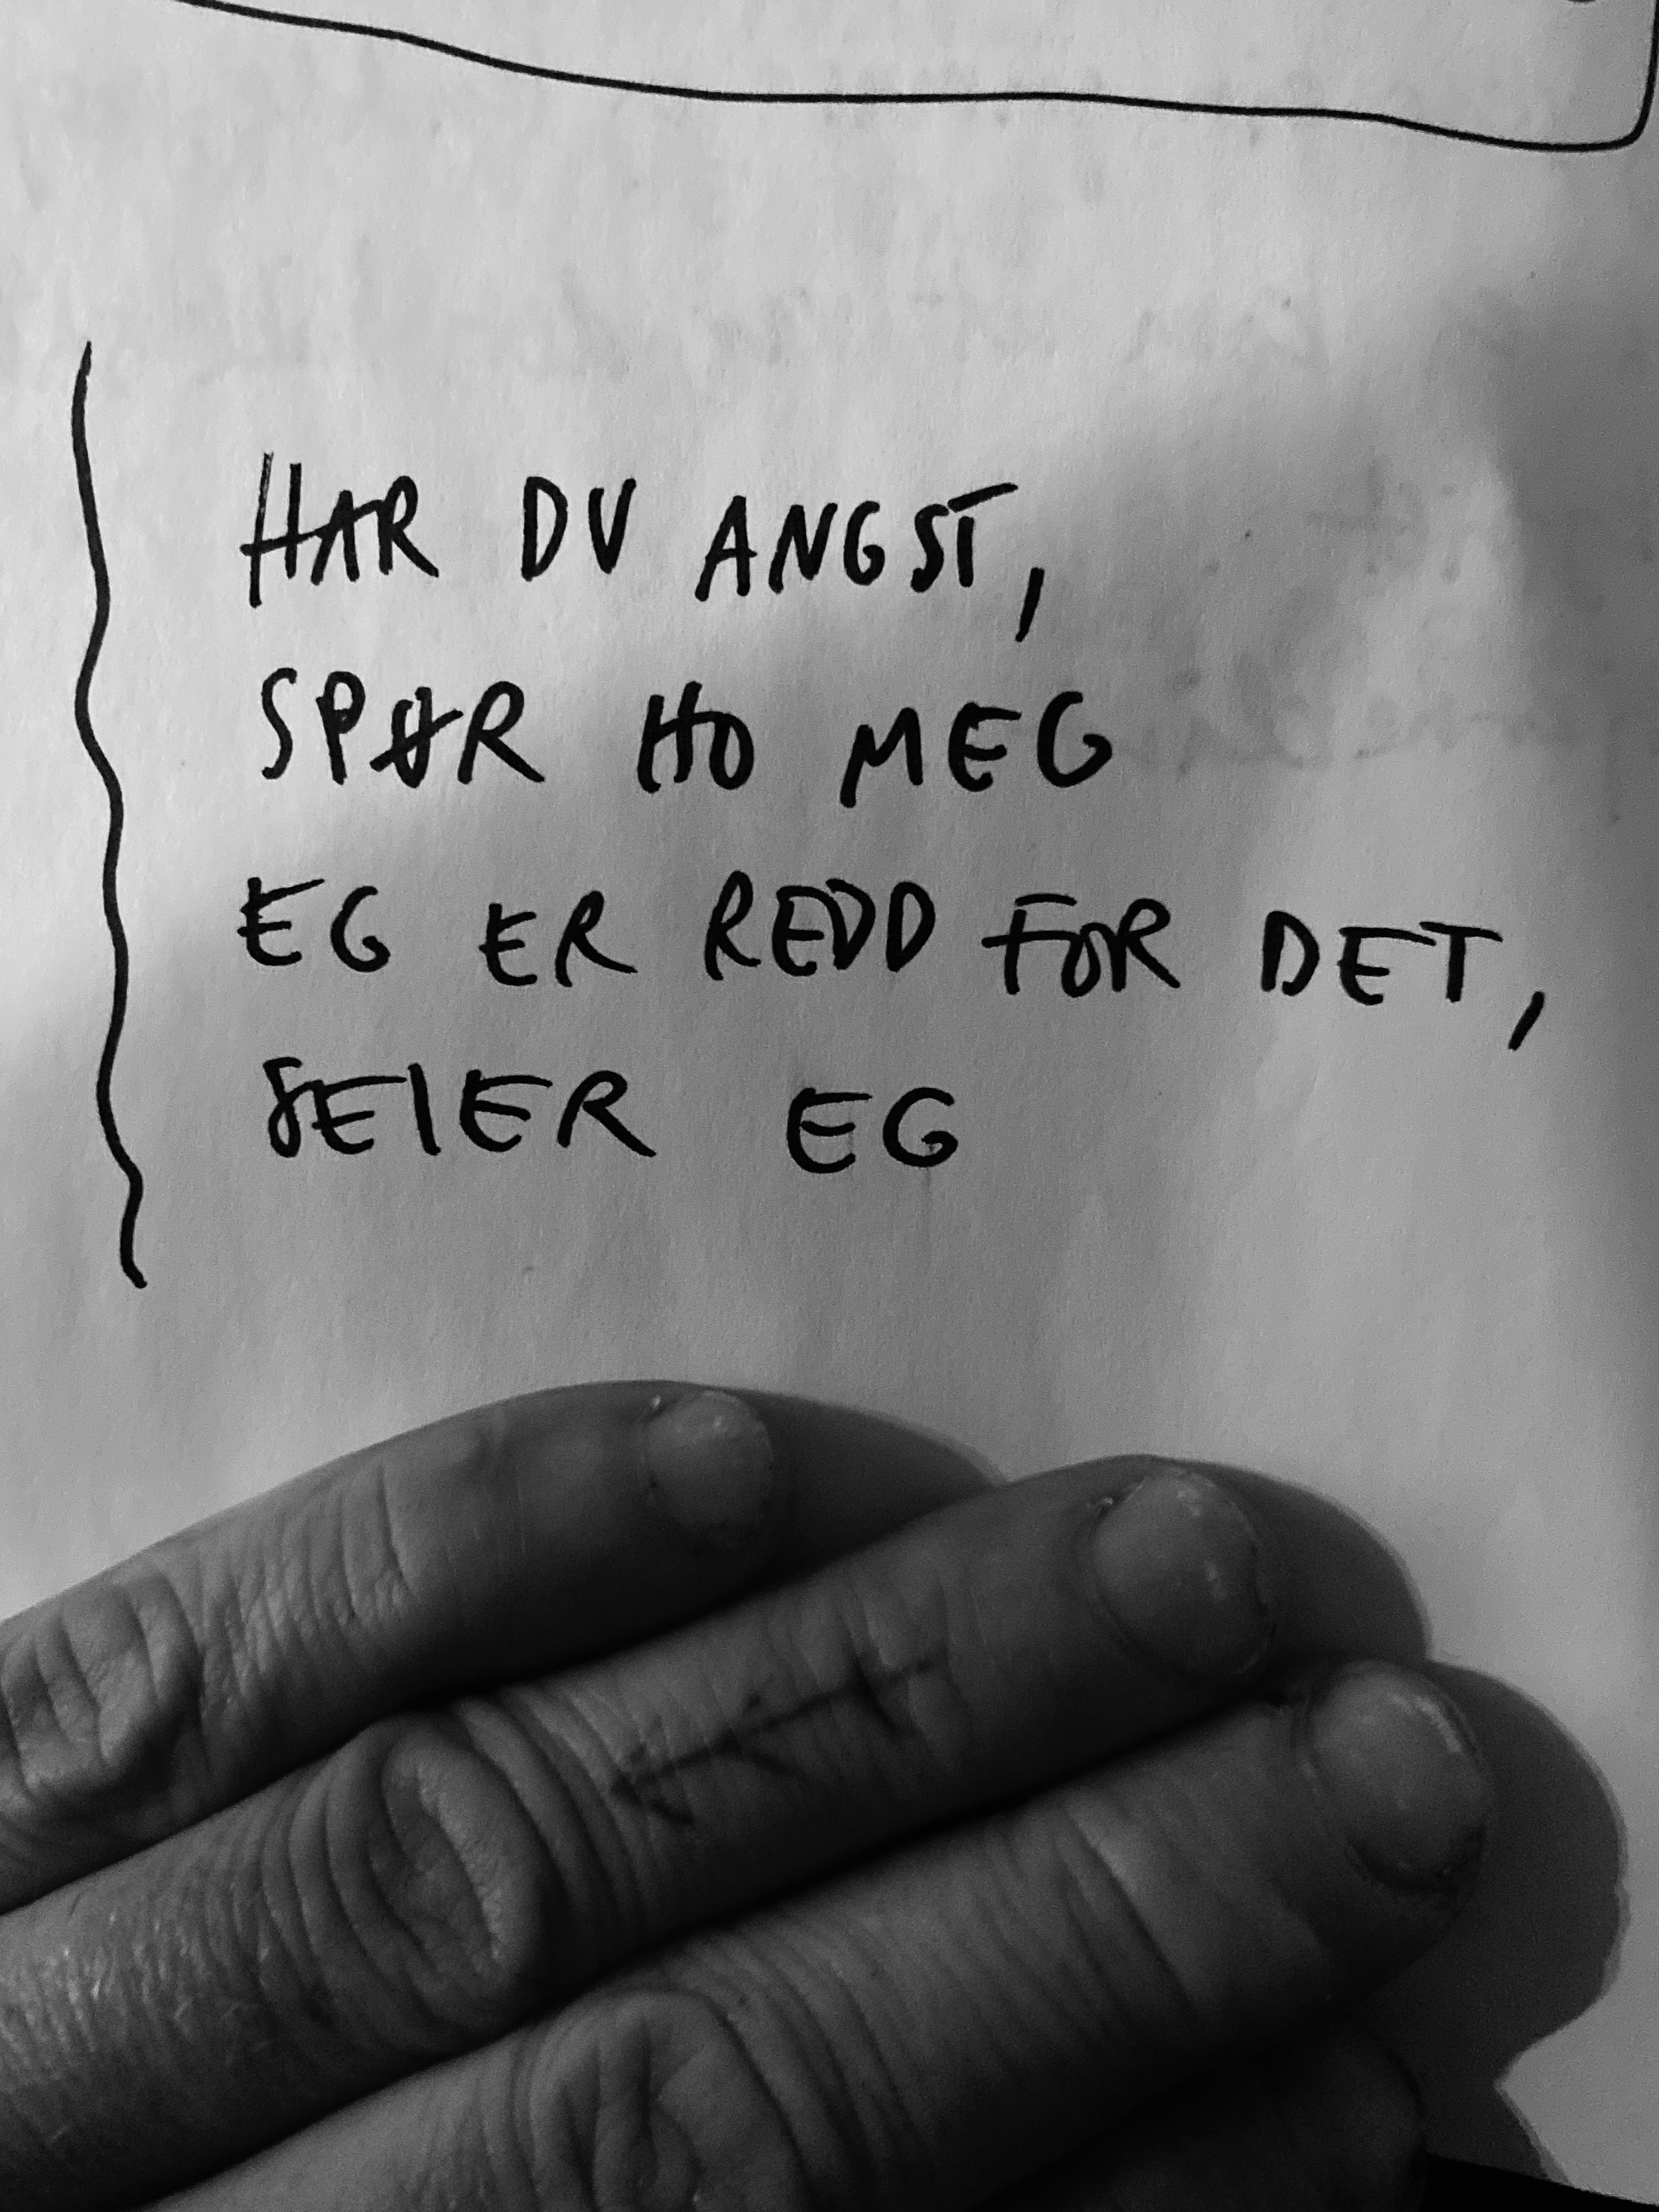 HAR DU ANGST,
SPØR HO MEG
EG ER REDD FOR DET,
SEIER EG